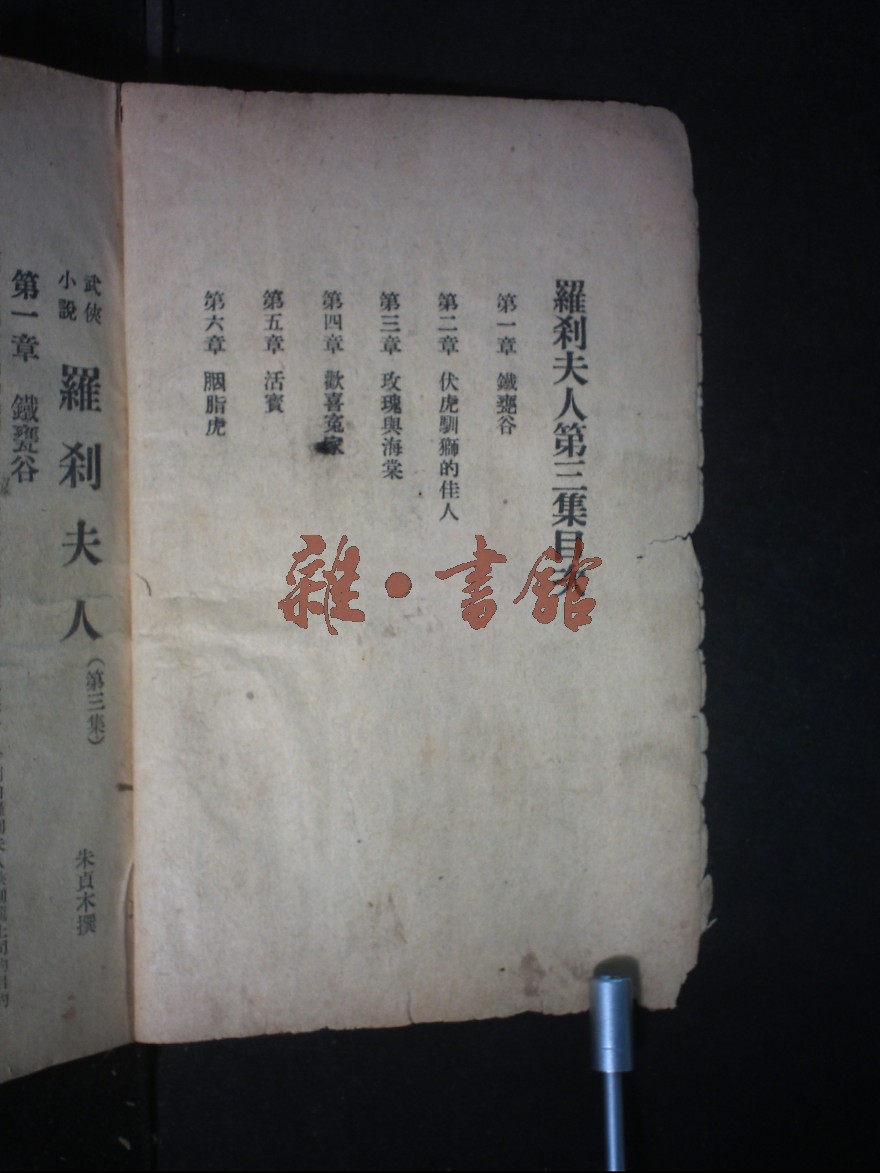 羅刹夫人第三集目次
第一章 鐵甕谷
第二章 伏虎馴獅的佳人
第三章 玫瑰與海棠
第四章 歡喜寃家
第五章 活寳
第六章 胭脂虎
雜·書館
武俠
小說
羅刹夫人
（第三集）
朱貞木撰
第一章 鐵甕谷